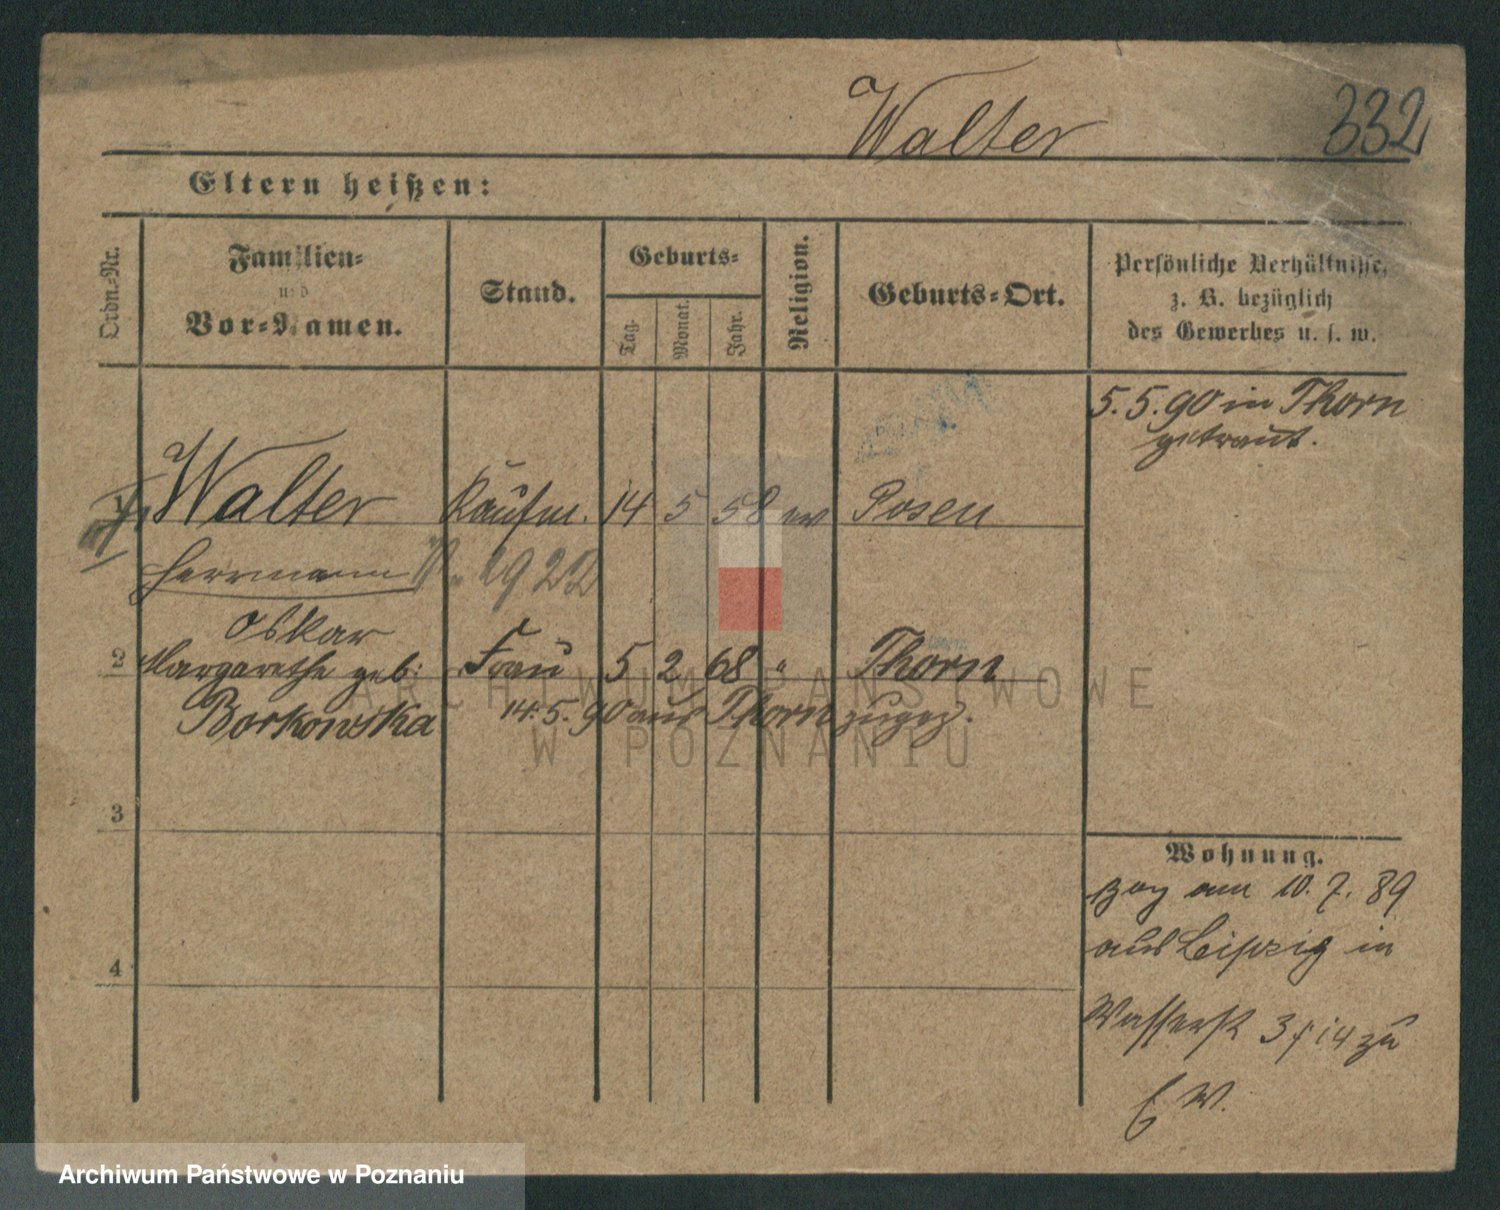 Walter 332
Eltern heißen:
Ordn.-Nr.
Familien-
und
Vor-Namen.
Stand.
Geburts-
Tag.
Monat.
Jahr.
Religion.
Geburts-Ort.
Persönliche Verhältnisse,
z. B. bezüglich
des Gewerbes u. s. w.
5. 5. 90 in Thorn
getraut.
1. Walter Kaufm. 14 5 58 ev Posen
Herrmann 1922
Oskar
2 Margarethe geb: Frau 5 2 68 " Thorn
Borkowska 14. 5. 90 aus Thorn zugez.
3
4
Wohnung.
zog am 10. 7. 89
aus Leipzig in
Wasserstr 3 zu
W.
ARCHIWUM PAŃSTWOWE
W POZNANIU
Archiwum Państwowe w Poznaniu